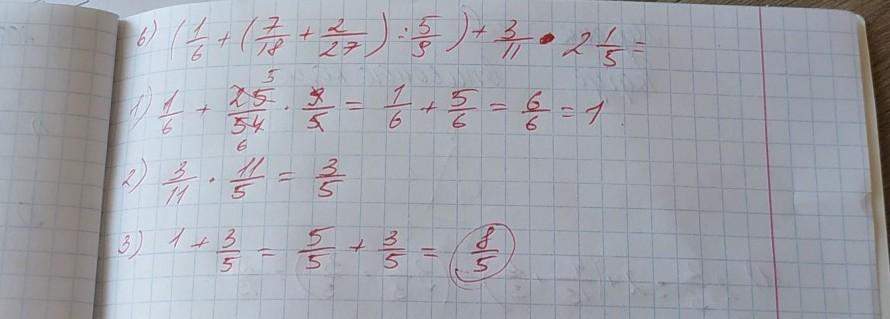 б) (1/6 + (7/18 + 2/27) : 5/9) + 3/11 • 2 1/5 =
1) 1/6 + 25/54 · 9/5 = 1/6 + 5/6 = 6/6 = 1
2) 3/11 · 11/5 = 3/5
3) 1 + 3/5 = 5/5 + 3/5 = 8/5